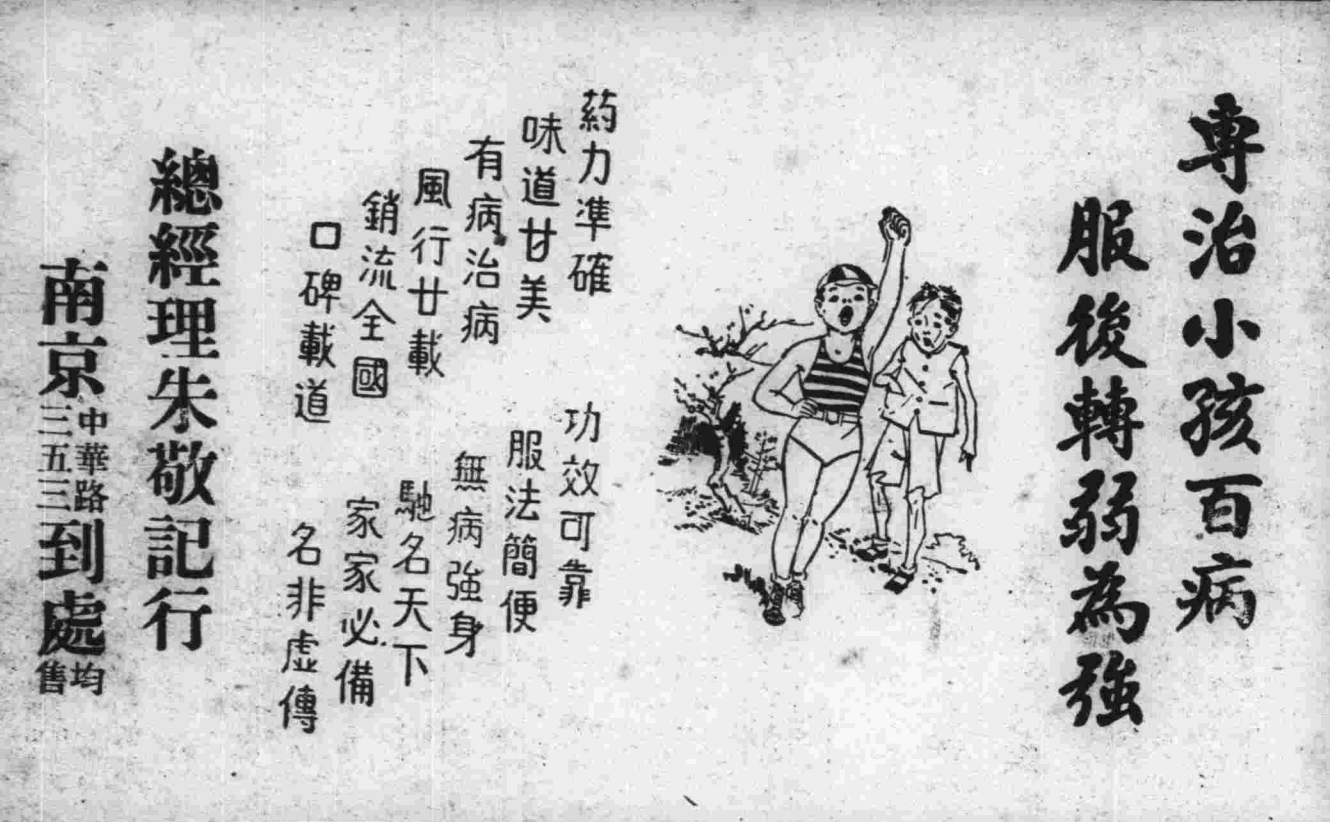 專治小孩百病
服後轉弱為強
葯力準確 功效可靠
味道甘美 服法簡便
有病治病 無病強身
風行廿載 馳名天下
銷流全國 家家必備
口碑載道 名非虛傳
總經理朱敬記行
南京中華路三五三到處均售